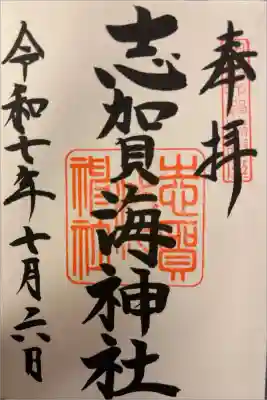 奉拝
志賀海神社
志賀海神社
令和七年十月六日